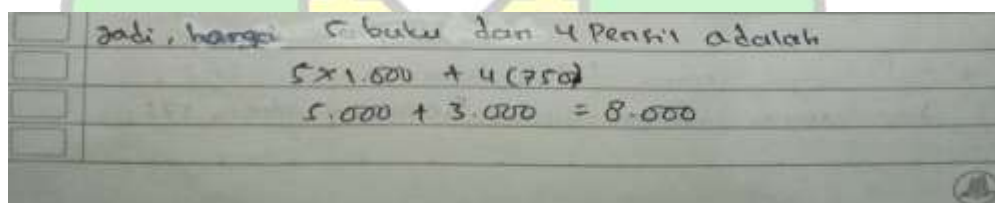 Jadi, harga 5 buku dan 4 Pensil adalah
5 x 1.000 + 4 (750)
5.000 + 3.000 = 8.000